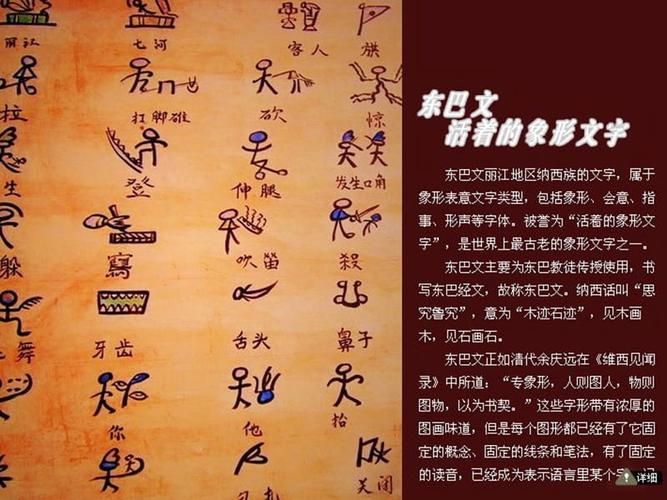 七河
客人 旗
拉 打脚碓 砍 惊
生 登 伸腿 发生口角
躲 寫 吹笛 殺
舞 牙齿 舌头 鼻子
你 他 抬
关闭
东巴文
活着的象形文字
东巴文丽江地区纳西族的文字，属于
象形表意文字类型，包括象形、会意、指
事、形声等字体。被誉为“活着的象形文
字”，是世界上最古老的象形文字之一。
东巴文主要为东巴教徒传授使用，书
写东巴经文，故称东巴文。纳西话叫“思
究鲁究”，意为“木迹石迹”，见木画
木，见石画石。
东巴文正如清代余庆远在《维西见闻
录》中所道：“专象形，人则图人，物则
图物，以为书契。”这些字形带有浓厚的
图画味道，但是每个图形都已经有了它固
定的概念、固定的线条和笔法，有了固定
的读音，已经成为表示语言里某个
详细